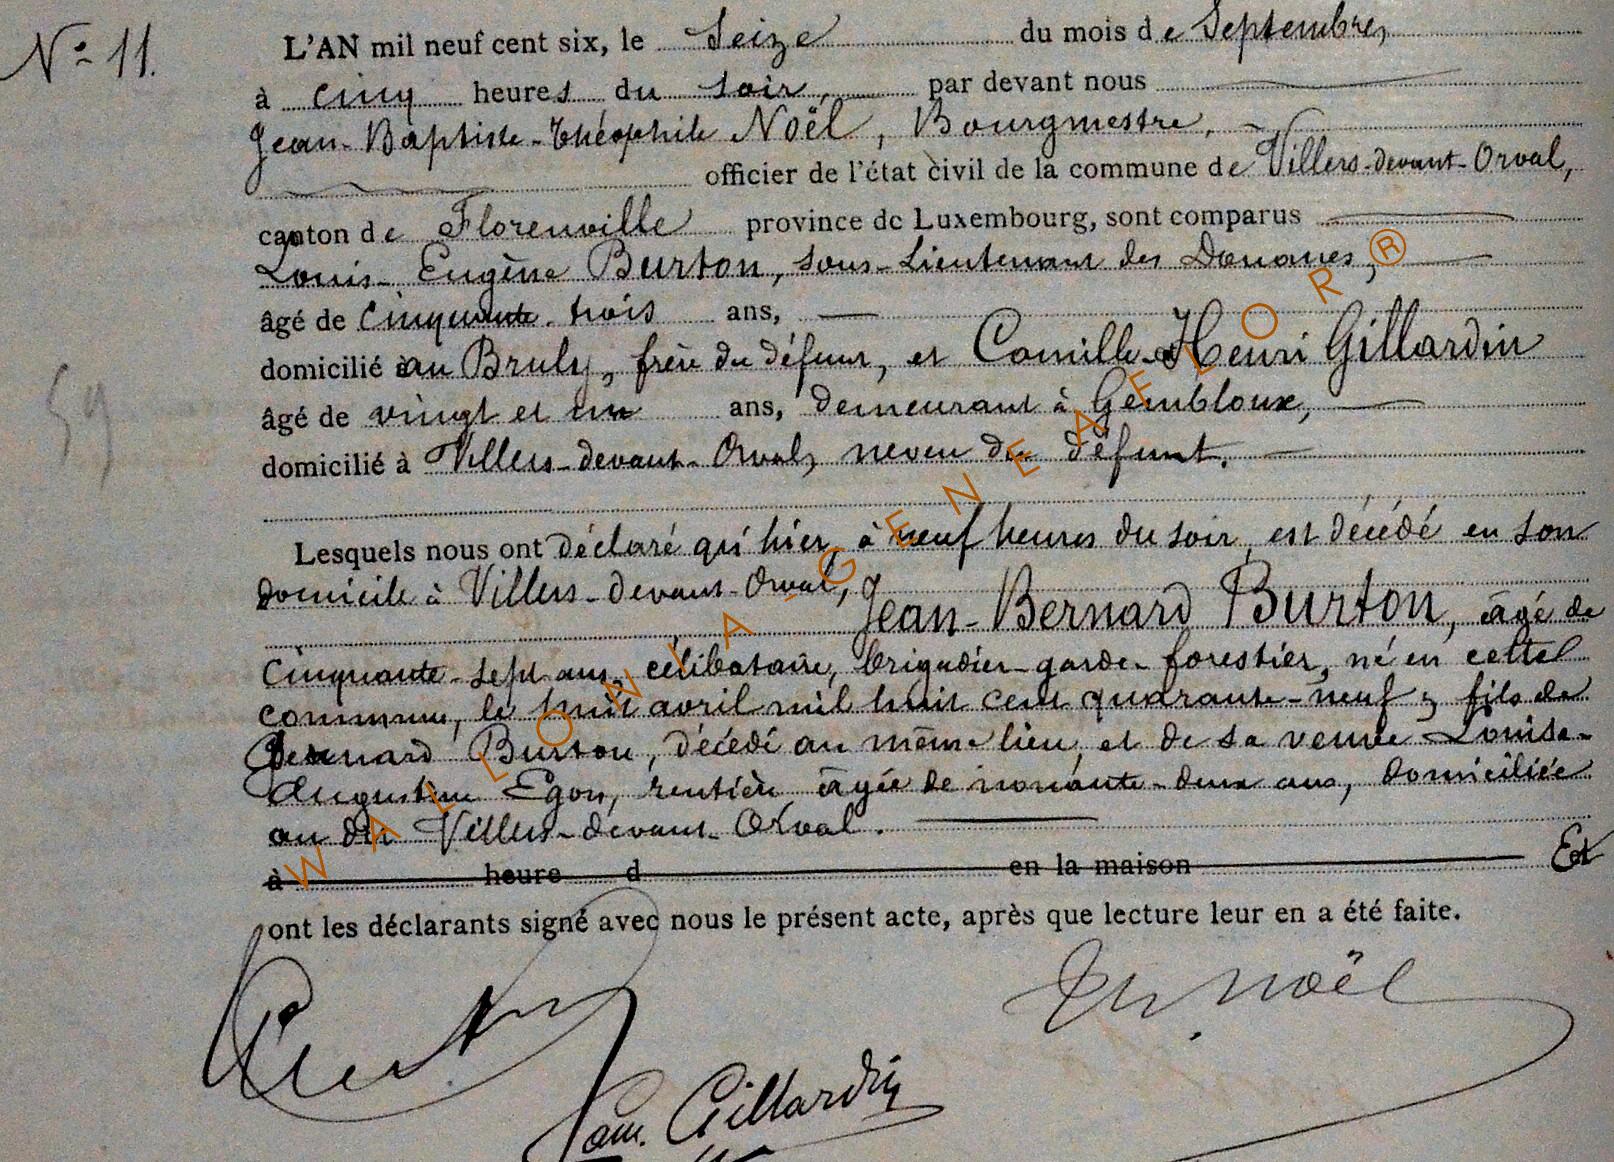 N° 11.
L'AN mil neuf cent six, le Seize du mois de Septembre,
à cinq heures du soir, par devant nous
Jean-Baptiste-Théophile Noël, Bourgmestre,
officier de l'état civil de la commune de Villers-devant-Orval,
canton de Florenville province de Luxembourg, sont comparus
Louis-Eugène Burton, sous-Lieutenant des Douanes,
âgé de cinquante-trois ans,
domicilié au Bruly, frère du défunt, et Camille-Henri Gillardin
âgé de vingt et un ans, demeurant à Gembloux,
domicilié à Villers-devant-Orval, neveu du défunt.
59
Lesquels nous ont déclaré qu'hier, à neuf heures du soir, est décédé en son
domicile à Villers-devant-Orval,
Jean-Bernard Burton, âgé de
cinquante-sept ans, célibataire, brigadier-garde-forestier, né en cette
commune, le huit avril mil huit cent quarante-neuf, fils de
Bernard Burton, décédé au même lieu, et de sa veuve Louise-
Augustine Egon, rentière âgée de nonante-deux ans, domiciliée
au dit Villers-devant-Orval.
à heure d en la maison Et
ont les déclarants signé avec nous le présent acte, après que lecture leur en a été faite.
Th. Noël
Cam. Gillardin
WALLONIA-GENEAFLOR®